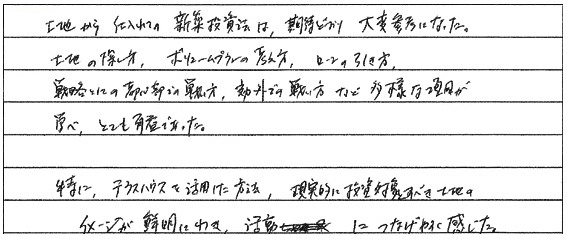 土地から仕入れての新築投資法は、期待どおり大変参考になった。
土地の探し方、ボリュームプランの考え方、ローンの引き方、
戦略としての都心部での戦い方、郊外での戦い方など多様な項目が
学べ、とても有益であった。
特に、テラスハウスを活用した方法、現実的に投資対象すべき土地の
イメージが鮮明にわき、活動につなげやすく感じた。